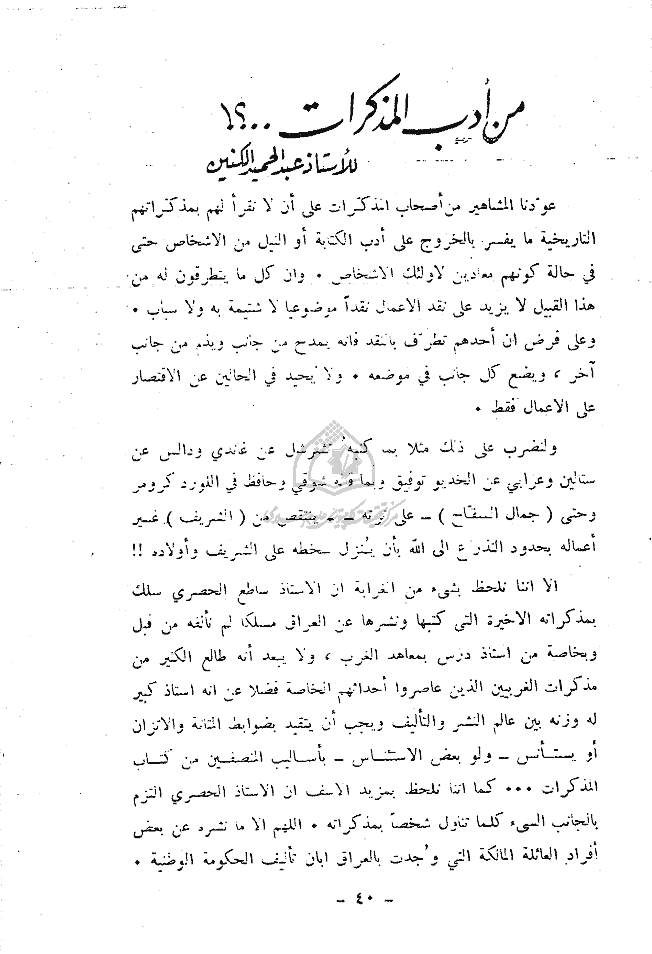 من أدب المذكرات ..؟!
للأستاذ عبدالحميد الكنين
عودنا المشاهير من أصحاب المذكرات على أن لا نقرأ لهم بمذكراتهم
التاريخية ما يفسر بالخروج على أدب الكتابة أو النيل من الاشخاص حتى
في حالة كونهم معادين لاولئك الاشخاص ٠ وان كل ما يتطرقون له من
هذا القبيل لا يزيد على نقد الاعمال نقداً موضوعيا لا شتيمة به ولا سباب ٠
وعلى فرض ان أحدهم تطرّف بالنقد فانه يمدح من جانب ويذم من جانب
آخر ، ويضع كل جانب في موضعه ٠ ولا يحيد في الحالين عن الاقتصار
على الاعمال فقط ٠
ولنضرب على ذلك مثلا بما كتبه تشرشل عن غاندي ودالس عن
ستالين وعرابي عن الخديو توفيق وبما قاله شوقي وحافظ في اللورد كرومر
وحتى ( جمال السفاح ) ــ على ــ ينتقص من ( الشريف ) غير
أعماله بحدود التذرع الى الله بأن يُنزل سخطه على الشريف وأولاده !!
الا اننا نلحظ بشىء من الغرابة ان الاستاذ ساطع الحصري سلك
بمذكراته الاخيرة التي كتبها ونشرها عن العراق مسلكا لم نألفه من قبل
وبخاصة من استاذ درس بمعاهد الغرب ، ولا يبعد أنه طالع الكثير من
مذكرات الغربيين الذين عاصروا أحداثهم الخاصة فضلا عن انه استاذ كبير
له وزنه بين عالم النشر والتأليف ويجب أن يتقيد بضوابط المتانة والاتزان
أو يستأنس ــ ولو بعض الاستئناس ــ بأساليب المنصفين من كتاب
المذكرات ٠٠٠ كما اننا نلحظ بمزيد الاسف ان الاستاذ الحصري التزم
بالجانب السيء كلما تناول شخصاً بمذكراته ٠ اللهم الا ما نشره عن بعض
أفراد العائلة المالكة التي وُجدت بالعراق ابان تأليف الحكومة الوطنية ٠
- ٤٠ -